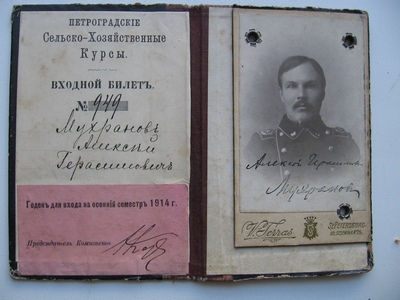 ПЕТРОГРАДСКІЕ
Сельско-Хозяйственные
Курсы.
ВХОДНОЙ БИЛЕТЪ.
№ 949
Мухрановъ
Алексѣй
Герасимовичъ
Годенъ для входа на осенній семестръ 1914 г.
Предсѣдатель Комитета
Алексѣй
Мухрановъ